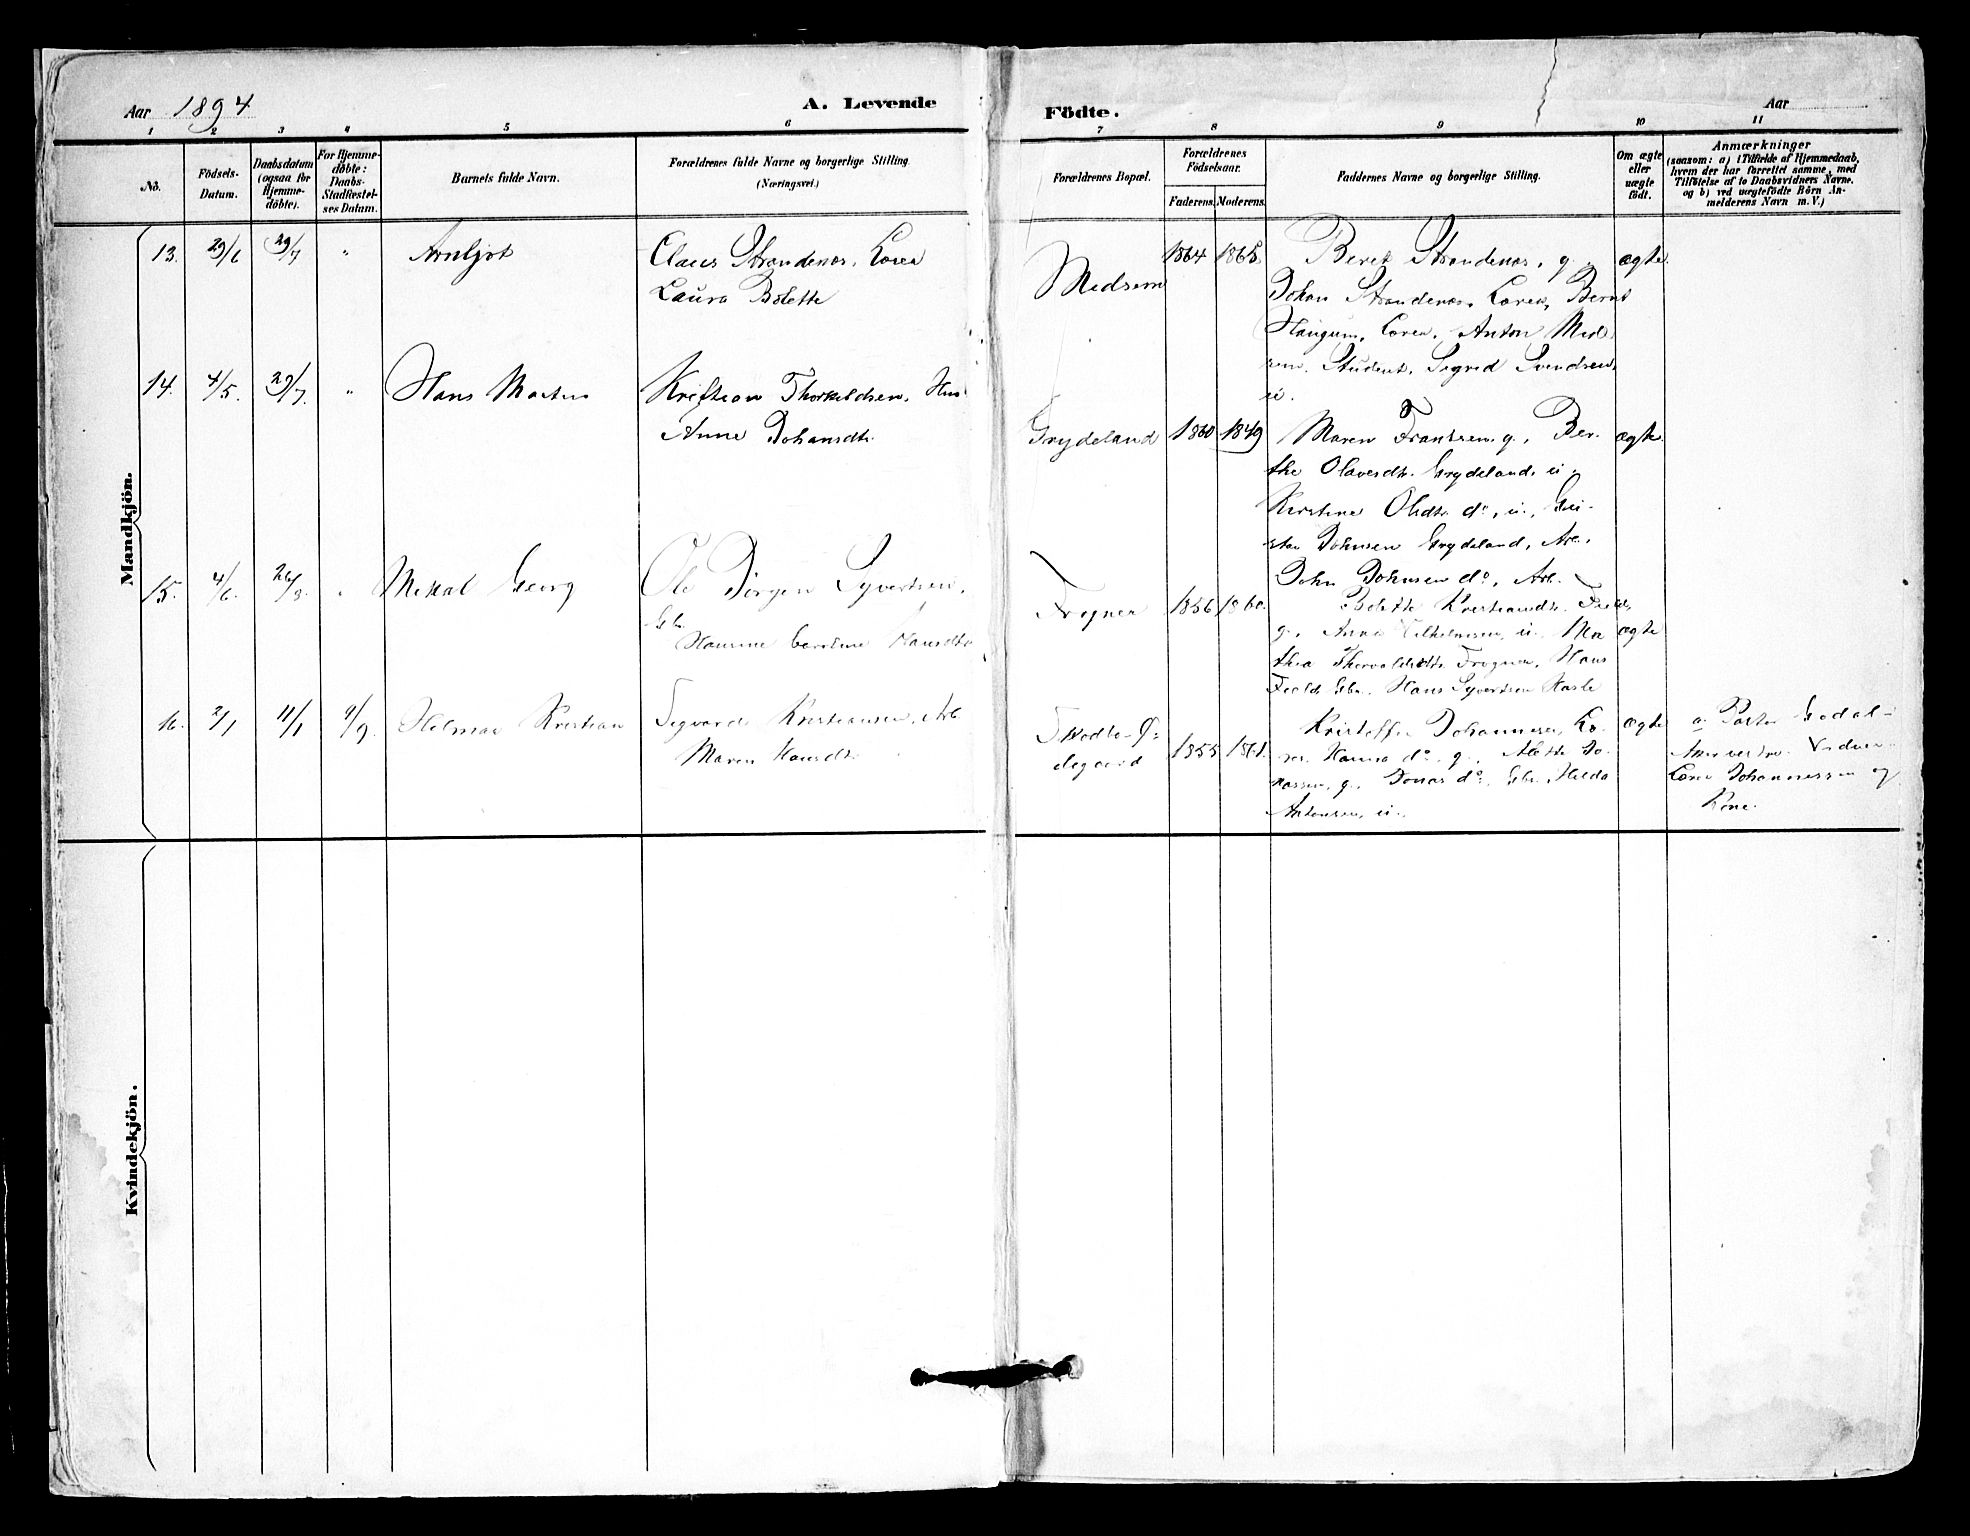 Aar 1894
A. Levende
Födte.
Aar
1 2 3 4 5 6 7 8 9 10 11
No.
Födsels-
Datum.
Daabsdatum
(ogsaa for
Hjemme-
döbte).
For Hjemme-
döbte:
Daabs-
Stadfæstel-
ses Datum.
Barnets fulde Navn.
Forældrenes fulde Navne og borgerlige Stilling.
(Næringsvei.)
Forældrenes Bopæl.
Forældrenes
Födselsaar.
Faderens. Moderens.
Faddernes Navne og borgerlige Stilling.
Om ægte
eller
uægte
födt.
Anmærkninger
(saasom: a) i Tilfælde af Hjemmedaab,
hvem der har forrettet samme, med
Tilföielse af to Daabsvidners Navne.
og b) ved uægtefödte Börn An-
melderens Navn m. V.)
Mandkjön.
13. 29/6 29/7 " Arnljot
Claus Strandenæs, Lærer
Laura Bolette
Medsem
1864 1865
Beret Strandenæs, g.
Johan Strandenæs, Lærer, Bernt
Haugum, Lærer, Anton Med
sem, Student, Sigrid Svendsen,
u.
ægte.
14. 4/5. 29/7. " Hans Morten
Kristian Thorkildsen, Hus
Anne Johansdtr.
Grydeland
1860 1849
Maren Frantsen, g., Ber-
the Olavesdtr. Grydeland, u.
Kirstine Olsdtr. do, u., Gu-
stav Johnsen Grydeland, Arb.
John Johnsen do, Arb.
ægte.
15. 4/6. 26/8. " Mikal Georg
Ole Jörgen Syvertsen,
Gbr.
Hansine Caroline Hansdtr.
Frogner
1856 1860.
Bolette Kristiansdtr.
g., Anne Vilhelmsen, u., Ma
thea Thorvaldsdtr. Frogner, Hans
Gbr. Hans Syvertsen Hasle
ægte
16. 2/1 11/1 9/9. Helmar Kristian
Sigvard Kristiansen, Arb.
Maren Hansdtr.
degaard
1855 1861.
Kristoffer Johannesen, Læ-
rer, Hanna do, g., Alette Jo-
nassen, g., Jonas do, Gbr., Hilda
Antonsen, u.
ægte
a. Pastor
Lærer Johannessen og
Kone.
Kvindekjön.